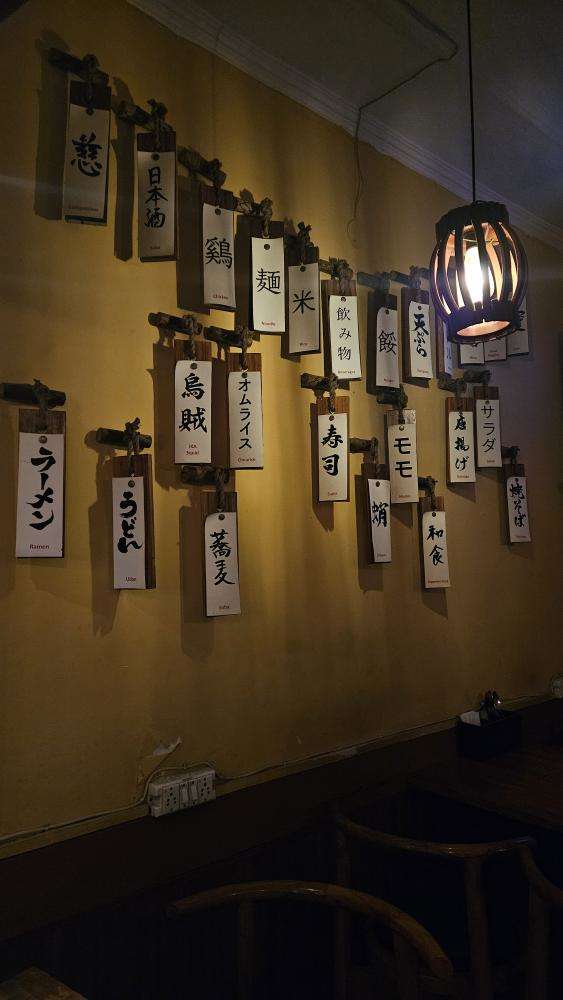 慈
日本酒
鶏
Chicken
麺
Noodle
米
Rice
飲み物
Beverages
餃
天ぷら
烏賊
IKA
Squid
オムライス
Omurice
寿司
Sushi
モモ
唐揚げ
サラダ
ラーメン
Ramen
うどん
Udon
蕎麦
Soba
蛸
和食
焼そば